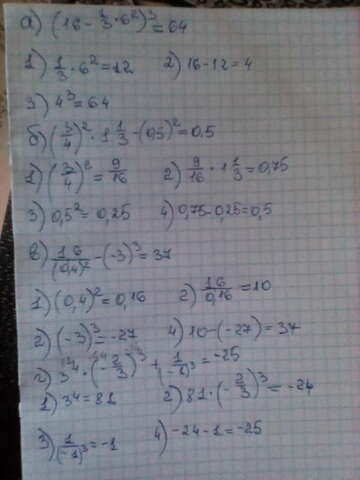 а) (16 - 1/3 · 6²)³ = 64
1) 1/3 · 6² = 12 2) 16 - 12 = 4
3) 4³ = 64
б) (3/4)² · 1 1/3 - (0,5)² = 0.5
1) (3/4)² = 9/16 2) 9/16 · 1 1/3 = 0,75
3) 0,5² = 0,25 4) 0,75 - 0,25 = 0,5
в) 1.6/(0,4)² - (-3)³ = 37
1) (0,4)² = 0,16 2) 1.6/0,16 = 10
2) (-3)³ = -27 4) 10 - (-27) = 37
г) 3⁴ · (-2/3)³ + 1/(-1)³ = -25
1) 3⁴ = 81 2) 81 · (-2/3)³ = -24
3) 1/(-1)³ = -1 4) -24 - 1 = -25